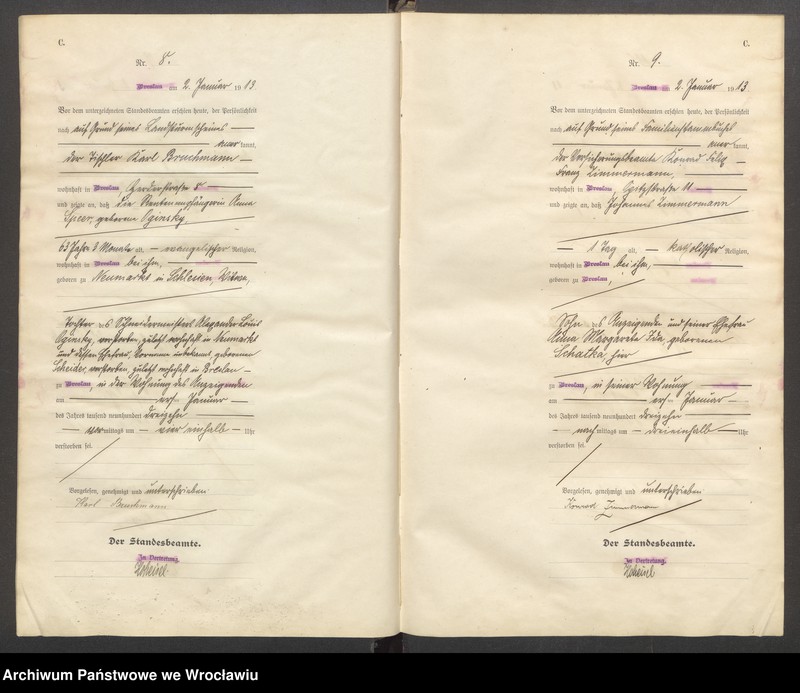 C.
Nr. 8.
Breslau am 2. Januar 1913
Vor dem unterzeichneten Standesbeamten erschien heute, der Persönlichkeit
nach auf Grund seines Landsturmscheines
anerkannt,
der Tischler Karl Bruchmann
wohnhaft in Breslau Herderstraße 5
und zeigte an, daß die Rentenempfängerin Anna
Speer, geborene Oginsky,
63 Jahre 3 Monate alt, evangelischer Religion,
wohnhaft in Breslau bei ihm,
geboren zu Neumarkt in Schlesien, Witwe,
Tochter des Schneidermeisters Alexander Louis
Oginsky, verstorben, zuletzt wohnhaft in Neumarkt
und dessen Ehefrau, Vorname unbekannt, geborenen
verstorben, zuletzt wohnhaft in Breslau
zu Breslau, in der Wohnung des Anzeigenden
am ersten Januar
des Jahres tausend neunhundert dreizehn
vormittags um vier einhalb Uhr
verstorben sei.
Vorgelesen, genehmigt und unterschrieben
Karl Bruchmann
Der Standesbeamte.
In Vertretung.
C.
Nr. 9.
Breslau am 2. Januar 1913
Vor dem unterzeichneten Standesbeamten erschien heute, der Persönlichkeit
nach auf Grund seines Familienstammbuches
anerkannt,
der Versicherungsbeamte Konrad Felix
Franz Zimmermann,
wohnhaft in Breslau Opitzstraße 11
und zeigte an, daß Johannes Zimmermann
1 Tag alt, katholischer Religion,
wohnhaft in Breslau bei ihm,
geboren zu Breslau,
Sohn des Anzeigenden und seiner Ehefrau
Anna Margarete Ida, geborenen
Schatka, hier
zu Breslau, in seiner Wohnung
am ersten Januar
des Jahres tausend neunhundert dreizehn
nachmittags um drei einhalb Uhr
verstorben sei.
Vorgelesen, genehmigt und unterschrieben
Konrad Zimmermann
Der Standesbeamte.
In Vertretung.
Archiwum Państwowe we Wrocławiu